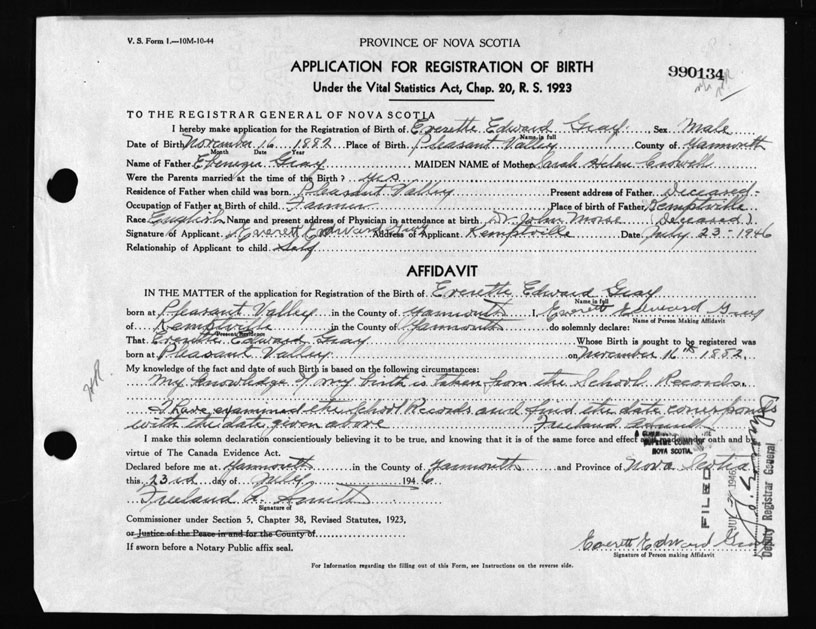 V. S. Form 1.—10M-10-44
PROVINCE OF NOVA SCOTIA
APPLICATION FOR REGISTRATION OF BIRTH
990134
Under the Vital Statistics Act, Chap. 20, R. S. 1923
TO THE REGISTRAR GENERAL OF NOVA SCOTIA
I hereby make application for the Registration of Birth of Everette Edward Gray, Sex Male
Name in full
Date of Birth November 16 1882 Place of Birth Pleasant Valley County of Yarmouth
Month Date Year
Name of Father Ebenezer Gray MAIDEN NAME of Mother Sarah Helen Crowell
Were the Parents married at the time of the Birth? yes
Residence of Father when child was born Pleasant Valley Present address of Father Deceased
Occupation of Father at Birth of child Farmer Place of birth of Father Kemptville
Race English Name and present address of Physician in attendance at birth Dr. John Morse (Deceased)
Signature of Applicant Everett Edward Gray Address of Applicant Kemptville Date July 23-1946
Relationship of Applicant to child Self
AFFIDAVIT
IN THE MATTER of the application for Registration of the Birth of Everette Edward Gray
Name in full
born at Pleasant Valley in the County of Yarmouth I, Everett Edward Gray
Name of Person Making Affidavit
of Kemptville in the County of Yarmouth do solemnly declare:
Present Residence
That Everette Edward Gray Whose Birth is sought to be registered was
born at Pleasant Valley on November 16th 1882.
My knowledge of the fact and date of such Birth is based on the following circumstances:
My knowledge of my birth is taken from the School Records.
I have examined the School Records and find the date corresponds
with the date given above Freeland
I make this solemn declaration conscientiously believing it to be true, and knowing that it is of the same force and effect as if made under oath and by
SUPREME COURT OF
NOVA SCOTIA.
virtue of The Canada Evidence Act.
Declared before me at Yarmouth in the County of Yarmouth and Province of Nova Scotia
this 23rd day of July 1946
Freeland
Signature of
Commissioner under Section 5, Chapter 38, Revised Statutes, 1923,
or Justice of the Peace in and for the County of
If sworn before a Notary Public affix seal.
Everett Edward Gray
Signature of Person making Affidavit
FILED
1946
Deputy Registrar General
For Information regarding the filling out of this Form, see Instructions on the reverse side.